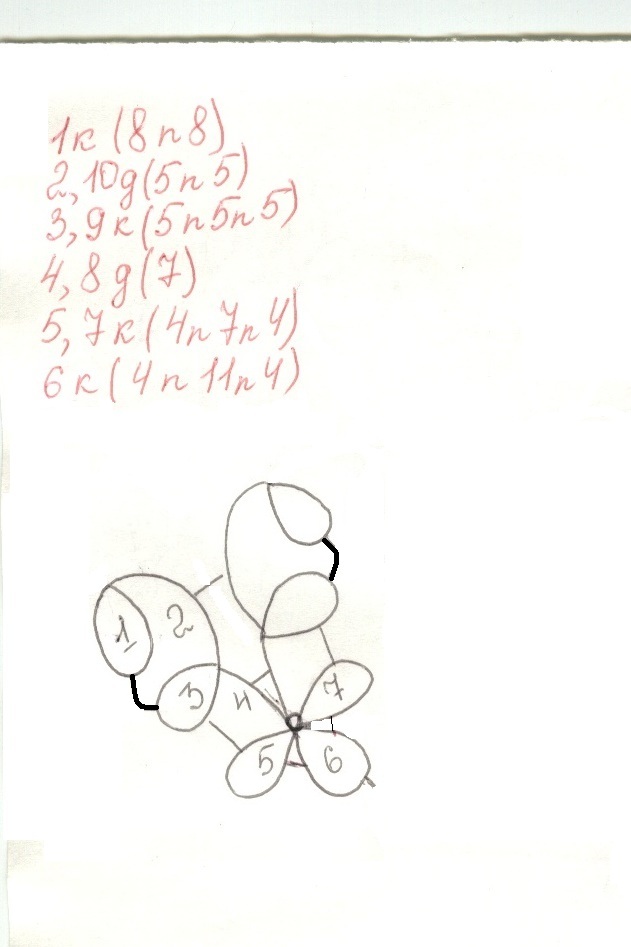 1к (8п8)
2, 10д(5п5)
3, 9к(5п5п5)
4, 8д(7)
5, 7к(4п7п4)
6к(4п11п4)
1
2
3
4
7
5
6